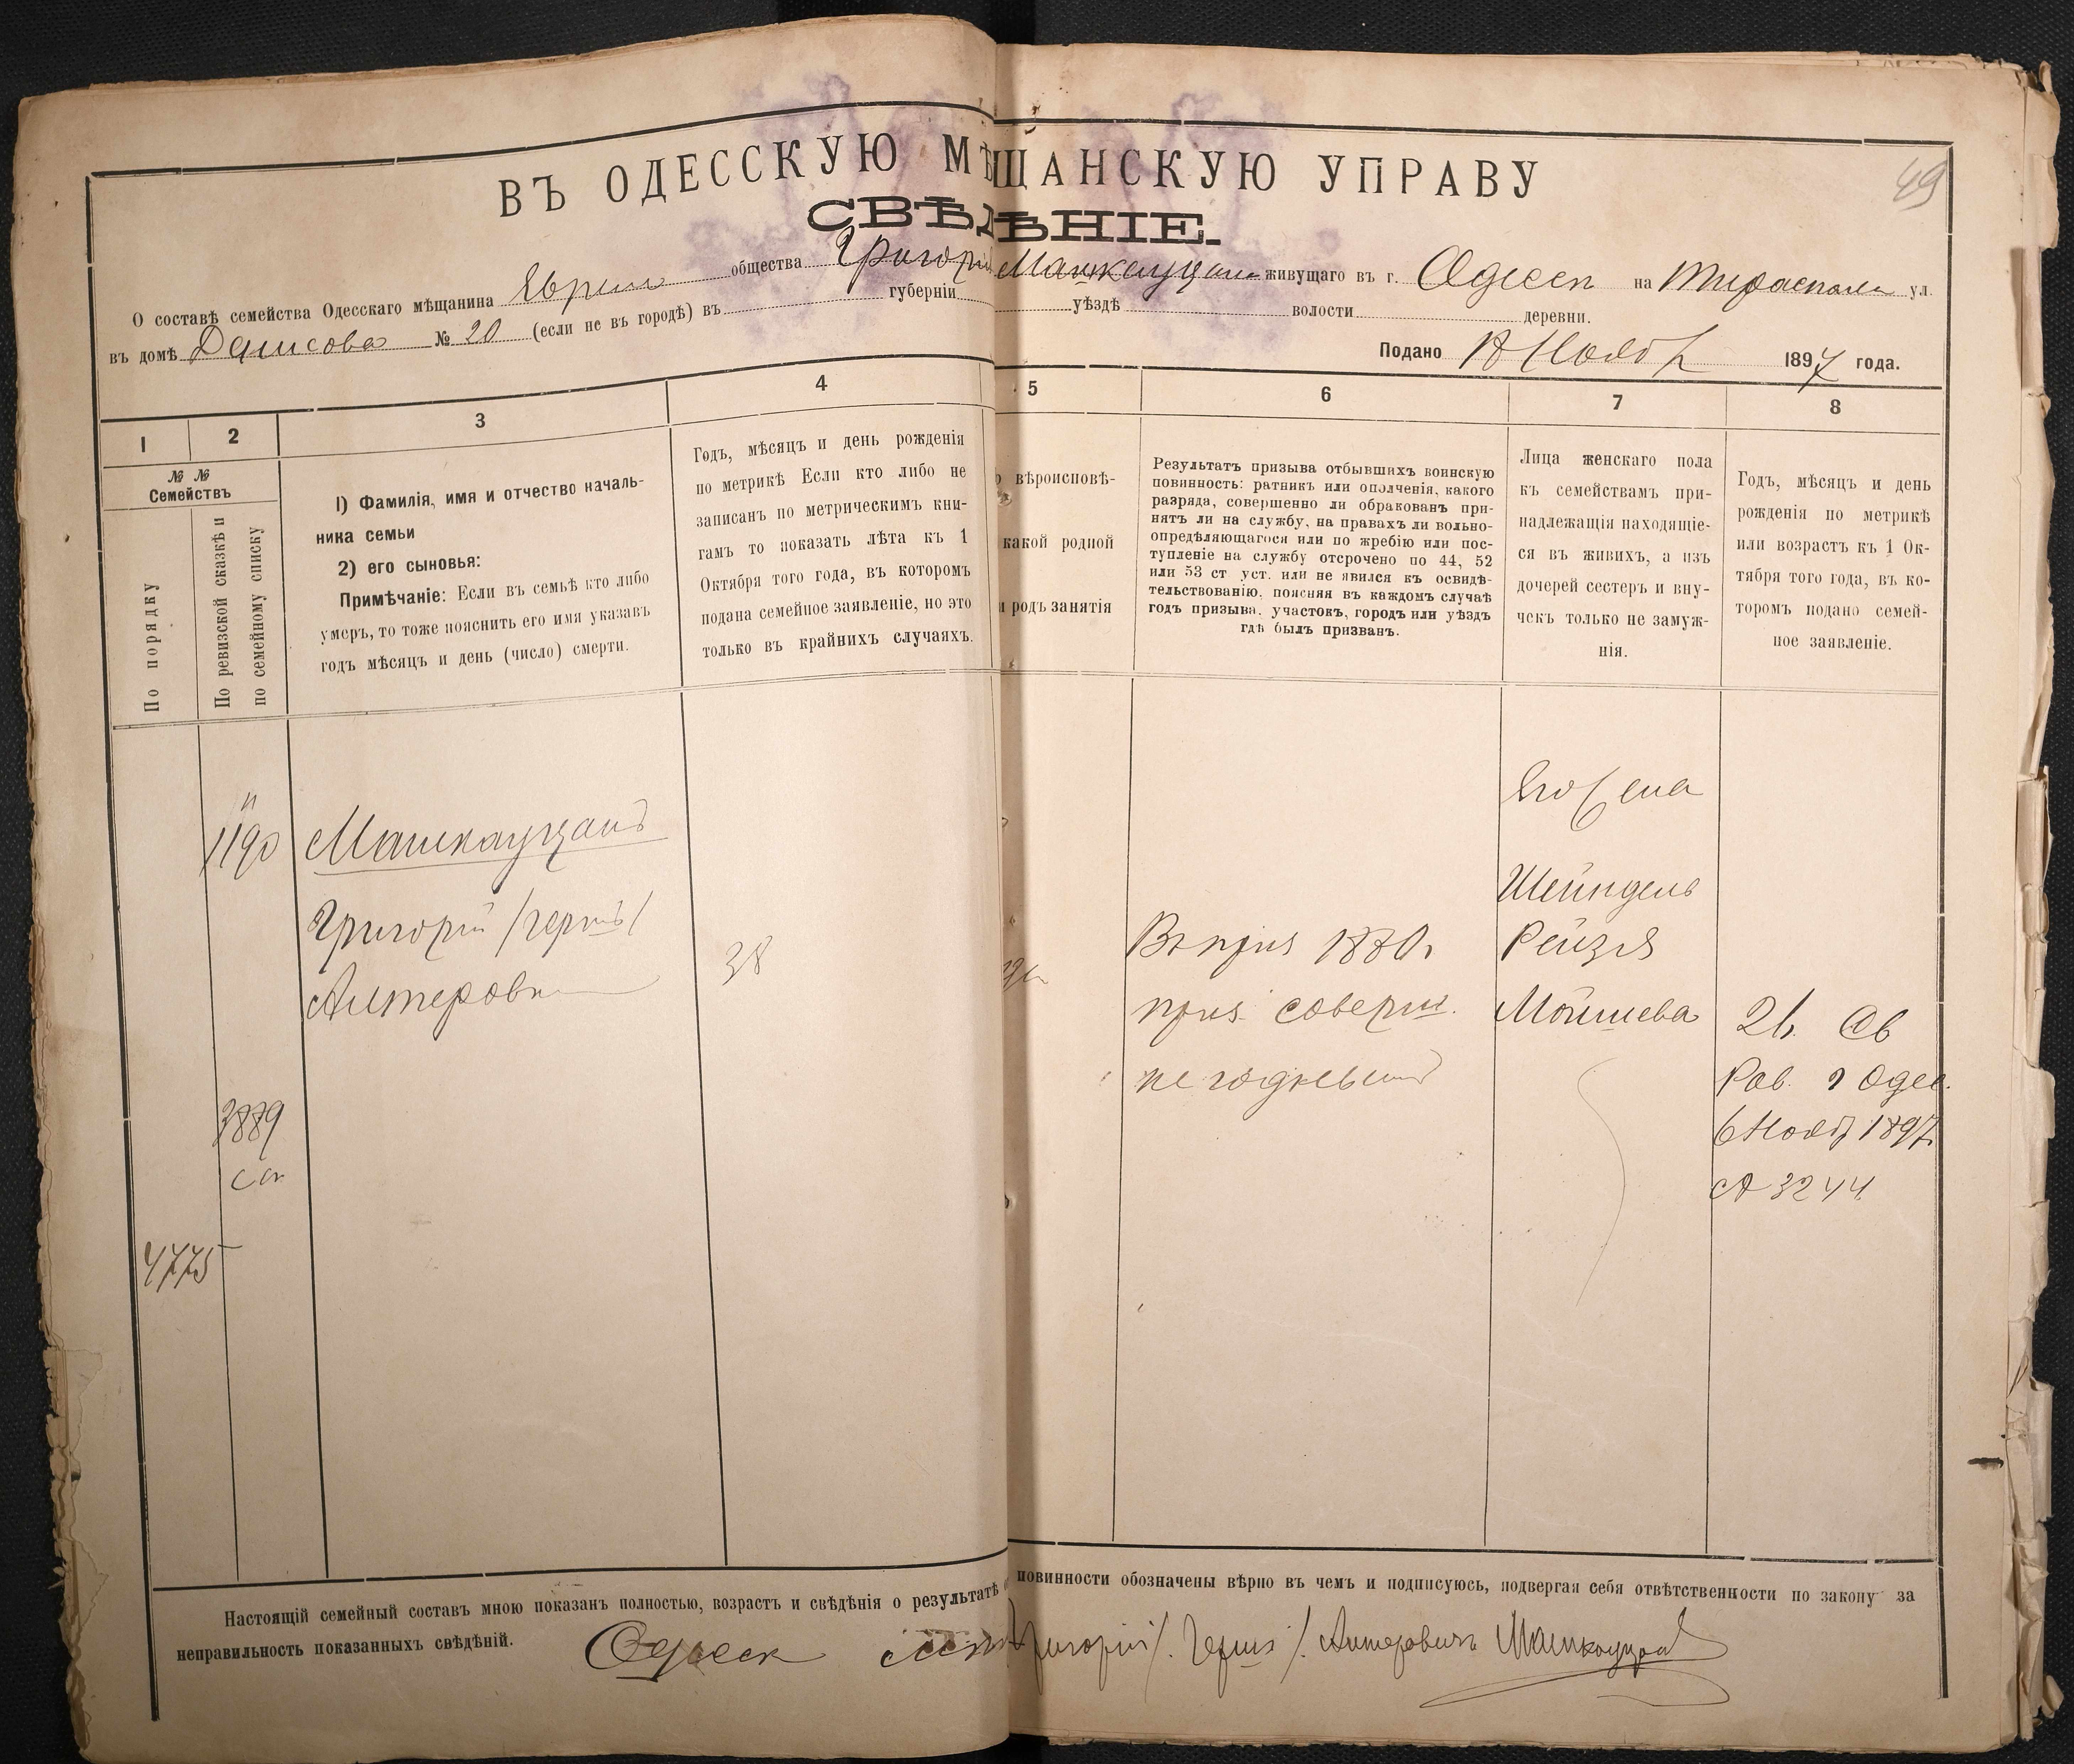 49
ВЪ ОДЕССКУЮ МѢЩАНСКУЮ УПРАВУ
СВѢДѢНІЕ.
О составѣ семейства Одесскаго мѣщанина Еврей общества Григорій Машкауцанъ живущаго въ г. Одессѣ на Тираспол ул.
въ домѣ № 20 (если не въ городѣ) въ губерніи уѣздѣ волости деревни.
Подано Нояб 1897 года.
1 2 3 4 5 6 7 8
№ № Семействъ
По порядку
По ревизской сказкѣ и
по семейному списку
1) Фамилія, имя и отчество началь-
ника семьи
2) его сыновья:
Примѣчаніе: Если въ семьѣ кто либо
умеръ, то тоже пояснить его имя указавъ
годъ мѣсяцъ и день (число) смерти.
Годъ, мѣсяцъ и день рожденія
по метрикѣ Если кто либо не
записанъ по метрическимъ кни-
гамъ то показать лѣта къ 1
Октября того года, въ которомъ
подана семейное заявленіе, но это
только въ крайнихъ случаяхъ.
вѣроисповѣ-
какой родной
и родъ занятія
Результатъ призыва отбывшихъ воинскую
повинность: ратникъ или ополченія, какого
разряда, совершенно ли обракованъ при-
нятъ ли на службу, на правахъ ли вольно-
опредѣляющагося или по жребію или пос-
тупленіе на службу отсрочено по 44, 52
или 53 ст уст. или не явился къ освидѣ-
тельствованію, поясняя въ каждомъ случаѣ
годъ призыва, участокъ, городъ или уѣздъ
гдѣ былъ призванъ.
Лица женскаго пола
къ семействамъ при-
надлежащія находящіе-
ся въ живихъ, а изъ
дочерей сестеръ и вну-
чекъ только не замуж-
нія.
Годъ, мѣсяцъ и день
рожденія по метрикѣ
или возрастъ къ 1 Ок-
тября того года, въ ко-
торомъ подано семей-
ное заявленіе.
1190
Машкауцанъ
Григорій /Гершъ/
Алтеровъ
38
1880
призн. соверш.
не годнымъ
Его жена
Шейндель
Рейзя
Мойшева
21. Св
Рав. г Одес.
6 Нояб 1897
3244
3889
4775
Настоящій семейный составъ мною показанъ полностью, возрастъ и свѣдѣнія о результатѣ повинности обозначены вѣрно въ чемъ и подписуюсь, подвергая себя отвѣтственности по закону за
неправильность показанныхъ свѣдѣній.
Одесск Григорій /Гершъ/ Алтеровичъ Машкауцанъ